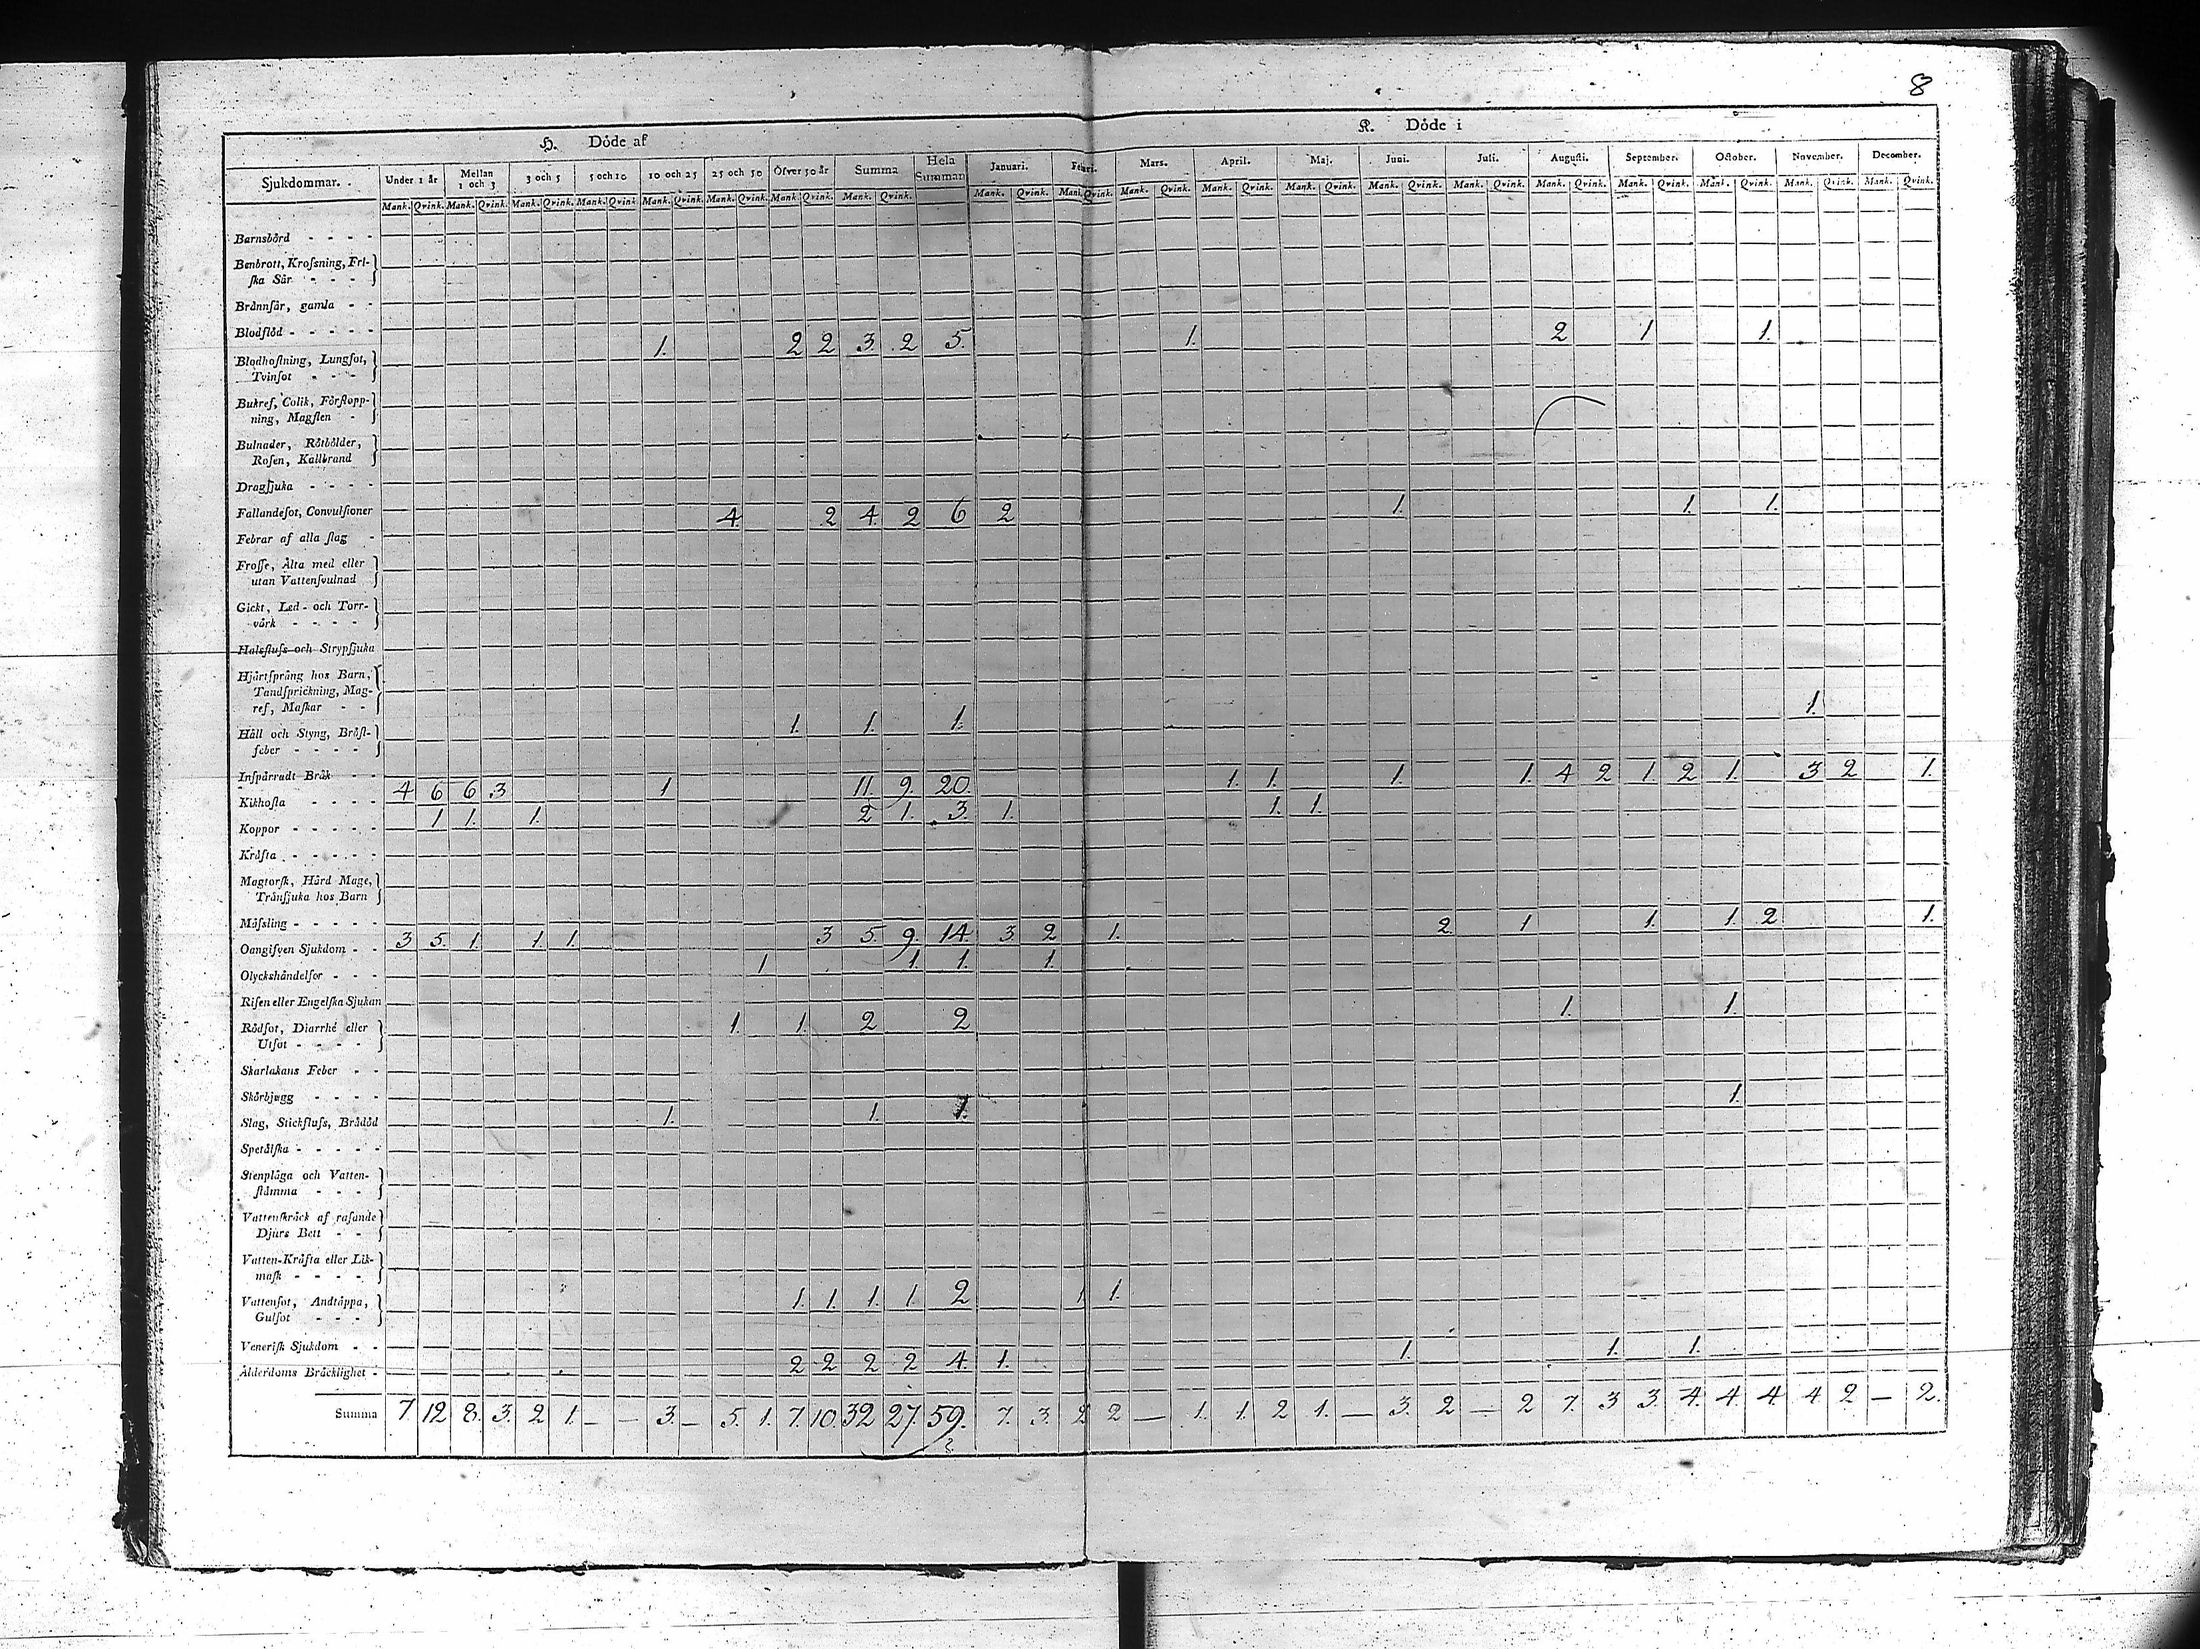 8
H. Döde af K. Döde i
Sjukdommar. Under 1 år Mellan 1 och 3 3 och 5 5 och 10 10 och 25 25 och 50 Öfver 50 år Summa Hela Summan Januari. Febri. Mars. April. Maj. Juni. Juli. Augusti. September. October. November. December.
Mank. Qvink. Mank. Qvink. Mank. Qvink. Mank. Qvink. Mank. Qvink. Mank. Qvink. Mank. Qvink. Mank. Qvink. Mank. Qvink. Mank. Qvink. Mank. Qvink. Mank. Qvink. Mank. Qvink. Mank. Qvink. Mank. Qvink. Mank. Qvink. Mank. Qvink. Mank. Qvink. Mank. Qvink. Mank. Qvink.
Barnsbörd - - - -
Benbrott, Krofsning, Fri-
ſka Sår - - -
Brännſår, gamla - -
Blodflöd - - - - -
1. 2 2 3. 2 5. 1. 2 1 1.
Blodhoſtning, Lungſot,
Tvinſot - - -
Bukref, Colik, Förſtopp-
ning, Magſten -
Bulnader, Rötbölder,
Roſen, Kallbrand
Dragſjuka - - - -
Fallandeſot, Convulſioner
4 2 4. 2 6 2 1. 1. 1.
Febrar af alla ſlag -
Froſſe, Älta med eller
utan Vattenſvulnad
Gickt, Led- och Torr-
värk - - - -
Halsfluſs och Strypſjuka
Hjärtſpräng hos Barn,
Tandſprickning, Mag-
ref, Maſkar - -
1. 1. 1. 1.
Håll och Styng, Bröſt-
feber - - - -
Inſpärradt Bråk - -
4 6 6 3 1 11. 9. 20. 1. 1. 1. 1. 4 2 1. 2 1. 3 2 1.
Kikhoſta - - - -
1 1. 1. 2 1. 3. 1. 1. 1.
Koppor - - - - -
Kräfta - - - - -
Magtorſk, Hård Mage,
Trånſjuka hos Barn
Mäſsling - - - -
3 5. 1. 1. 1. 3 5. 9. 14. 3. 2 1. 2. 1. 1. 1. 2 1.
Oangifven Sjukdom - -
1 1. 1. 1.
Olyckshändelſor - - -
Riſen eller Engelſka Sjukan
1. 1. 2 2 1. 1.
Rödſot, Diarrhé eller
Utſot - - - -
Skarlakans Feber - -
Skörbjugg - - - -
1. 1. 1. 1.
Slag, Stickfluſs, Brådöd
Spetälſka - - - - -
Stenplåga och Vatten-
ſtämma - - -
Vattenſkräck af raſande
Djurs Bett - -
Vatten-Kräfta eller Lik-
maſk - - - -
1. 1. 1. 1. 2 1 1.
Vattenſot, Andtäppa,
Gulſot - - -
Veneriſk Sjukdom - -
2 2 2 2 4. 1. 1. 1. 1.
Ålderdoms Bräcklighet -
Summa 7. 12 8. 3. 2 1. — — 3. — 5. 1. 7. 10. 32 27. 59. 7. 3. 2 2 — 1. 1. 2 1. — 3. 2 — 2 7. 3 3. 4. 4. 4. 4 2 — 2.